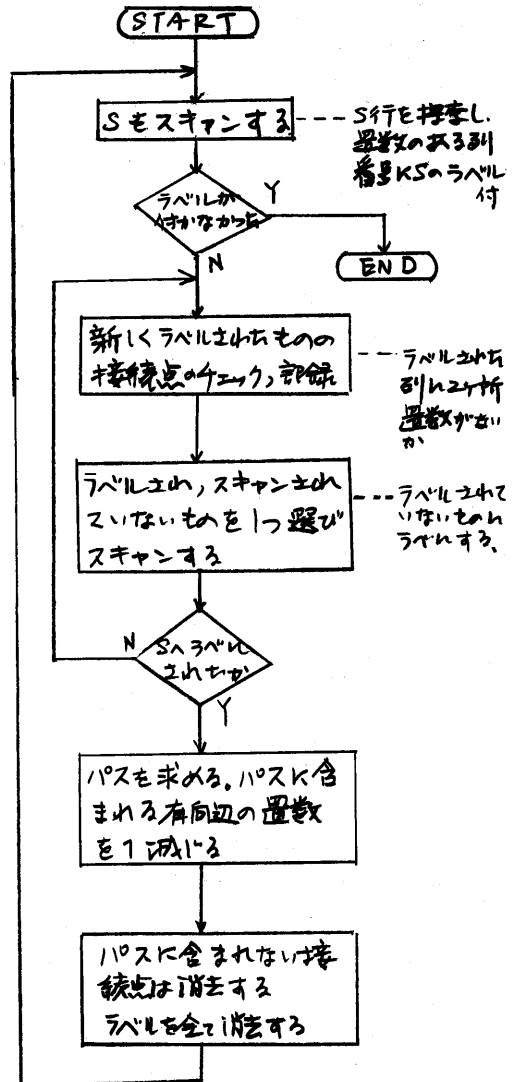 START
Sをスキャンする
S行を探索し、
置数のある列
番号にSのラベル
付
ラベルが
付かなかった
Y
N
END
新しくラベルされたものの
接続点のチェック,記録
ラベルされた
列に2ヶ所
置数がない
か
ラベルされ,スキャンされ
ていないものを1つ選び
スキャンする
ラベルされて
いないものに
ラベルする。
Sへラベル
されたか
N
Y
パスを求める。パスに含
まれる有向辺の置数
を1減じる
パスに含まれない接
続点は消去する
ラベルを全て消去する